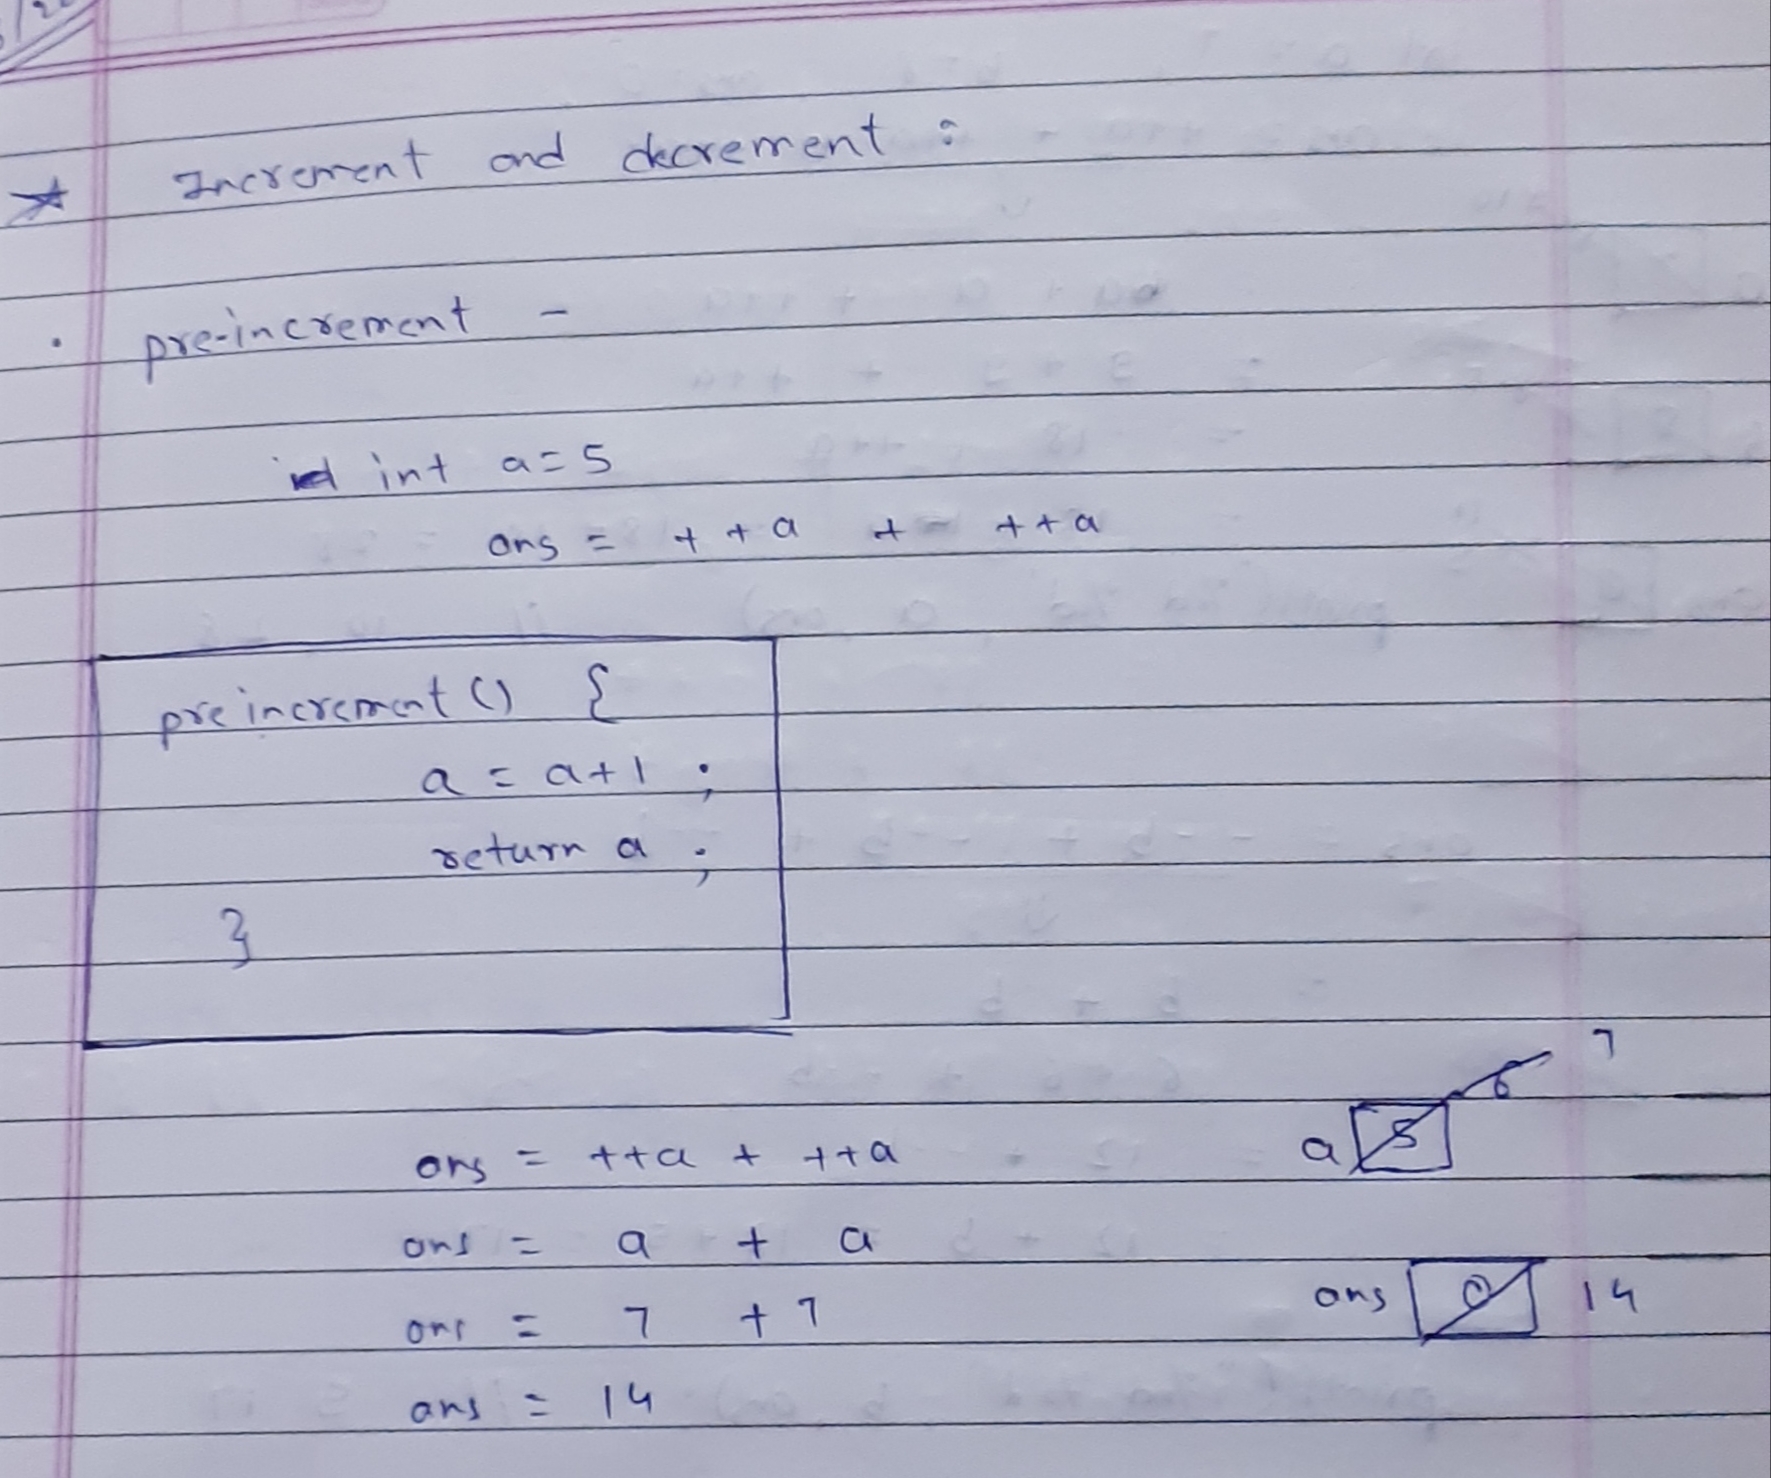 * Increment and decrement :
. pre-increment -
int a = 5
ans = ++a + ++a
pre increment () {
a = a+1 ;
return a ;
}
6 7
ans = ++a + ++a a 5
ans = a + a
ans = 7 + 7 ans 0 14
ans = 14